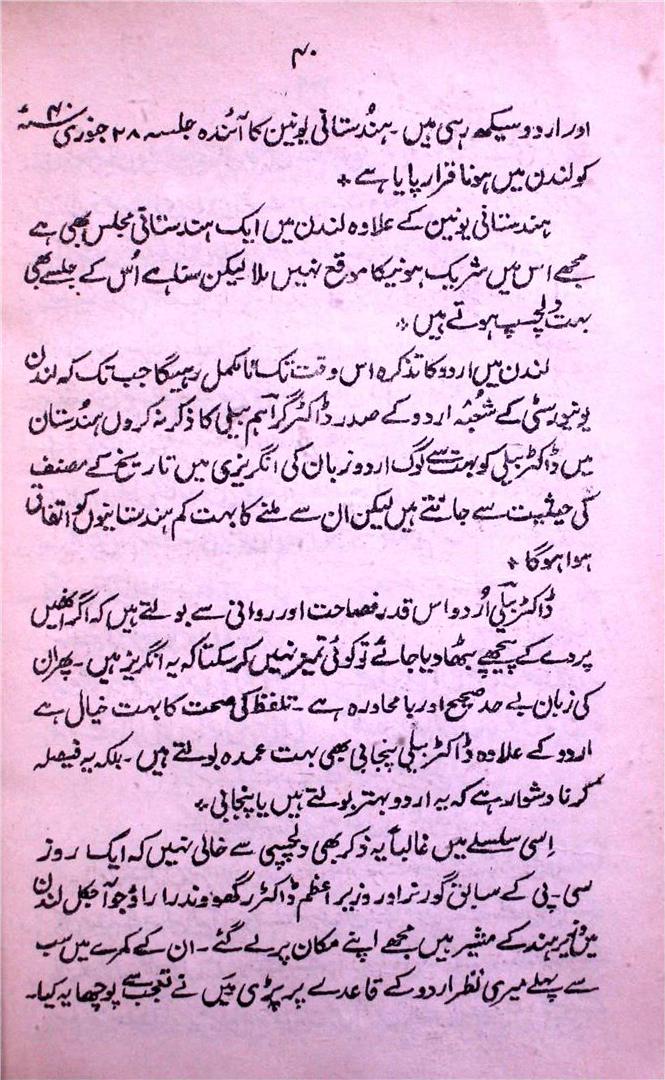 ۴۰
اور اردو سیکھ رہی ہیں۔ ہندُستانی یونین کا آئندہ جلسہ ۲۸ جنوری ۴۰ سنہء
کو لندن میں ہونا قرار پایا ہے +
ہندستانی یونین کے علاوہ لندن میں ایک ہندستانی مجلس بھی ہے
مجھے اس میں شریک ہونیکا موقع نہیں ملا لیکن سنا ہے اُس کے جلسے بھی
بہت دلچسپ ہوتے ہیں +
لندن میں اردو کا تذکرہ اس وقت تک نامکمل رہیگا جب تک کہ لندن
یونیورسٹی کے شعبٔہ اردو کے صدر ڈاکٹر گراہم بیلی کا ذکر نہ کروں ہندُستان
میں ڈاکٹر بیلی کو بہت سے لوگ اردو زبان کی انگریزی میں تاریخ کے مصنف
کی حیثیت سے جانتے ہیں لیکن ان سے ملنے کا بہت کم ہندستانیوں کو اتفاق
ہوا ہوگا +
ڈاکٹر بیلی اُردو اس قدر فصاحت اور روانی سے بولتے ہیں کہ اگر انھیں
پردے کے پیچھے بٹھا دیا جائے تو کوئی تمیز نہیں کر سکتا کہ یہ انگریز ہیں۔ پھر ان
کی زبان بے حد صحیح اور با محاورہ ہے۔ تلفظ کی صحت کا بہت خیال ہے
اردو کے علاوہ ڈاکٹر بیلی پنجابی بھی بہت عمدہ بولتے ہیں۔ بلکہ یہ فیصلہ
کرنا دشوار ہے کہ یہ اردو بہتر بولتے ہیں یا پنجابی +
اِسی سلسلے میں غالباً یہ ذکر بھی دلچسپی سے خالی نہیں کہ ایک روز
سی۔ پی کے سابق گورنر اور وزیر اعظم ڈاکٹر رگھووندرا راؤ جو آجکل لندن
میں وزیر ہند کے مشیر ہیں مجھے اپنے مکان پر لے گئے۔ ان کے کمرے میں سب
سے پہلے میری نظر اردو کے قاعدے پر پڑی میَں نے تعجب سے پوچھا یہ کیا۔